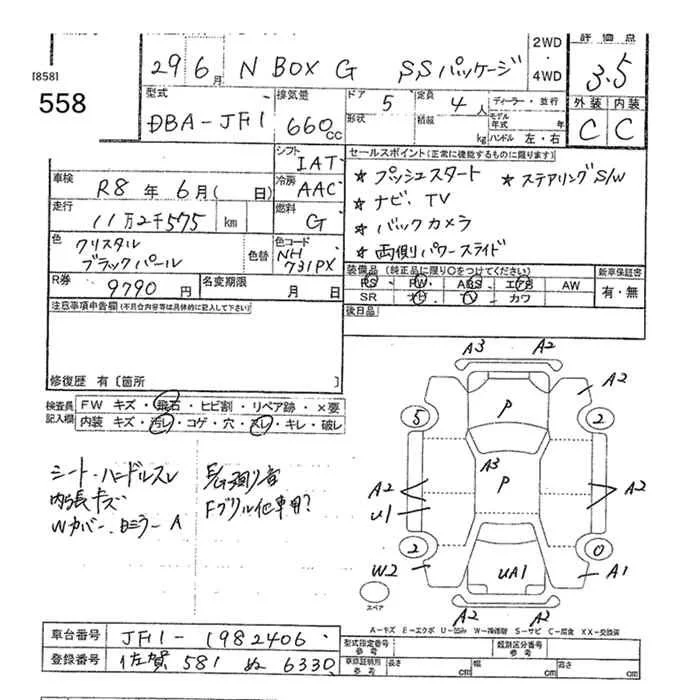 評価点
2WD
29 6月 N BOX G SSパッケージ
4WD
3.5
[858]
558
型式
DBA-JF1
排気量
660cc
ドア
5
定員
4人
ディーラー・並行
形状
積載
kg
モデル年式
年
ハンドル 左・右
外装 内装
C C
シフト
IAT
セールスポイント(正常に機能するものに限ります)
車検
R8年6月(日)
冷房
AAC
★ プッシュスタート ★ ステアリングS/W
★ ナビ、TV
走行
11万2千575 km
燃料
G
★ バックカメラ
★ 両側パワースライド
色
クリスタル
ブラックパール
色替
色コード
NH
731PX
装備品(純正品に限り○をつけてください)
新車保証書
PS PW ABS エアB AW
有・無
R券
9790円
名変期限
月 日
SR ナビ TV カワ
注意事項申告欄(不具合内容等は具体的に記入して下さい)
後日品
修復歴 有〔箇所 〕
検査員記入欄
FW キズ・飛石・ヒビ割・リペア跡・×要
内装 キズ・汚レ・コゲ・穴・スレ・キレ・破レ
シート・ハンドルスレ
内張キズ
Wカバー、
ミラーA
廻り音
Fグリル他車用?
A3 A2
A2
5
P
2
A3
P
A2
A2
U1
2
0
W2
UA1
A1
A2 A2
スペア
A-キズ E-エクボ U-凹み W-補修跡 S-サビ C-腐食 XX-交換済
車台番号
JF1-1982406
登録番号
佐賀 581 ぬ 6330
型式指定番号
参考
類別区分番号
参考
車庫証明用
参考
長さ
cm
幅
cm
高さ
cm